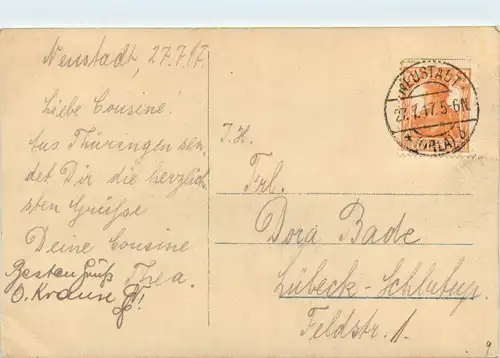 Neustadt, 27.7.17.
Liebe Cousine!
Aus Thüringen sen-
det Dir die herzlich-
sten Grüsse
Deine Cousine
Thea.
Besten Gruß
O. Krause
NEUSTADT
27.7.17.5-6N
* (ORLA) b
T. H.
Frl.
Dora Bade
Lübeck-Schlutup.
Feldstr. 1.
9